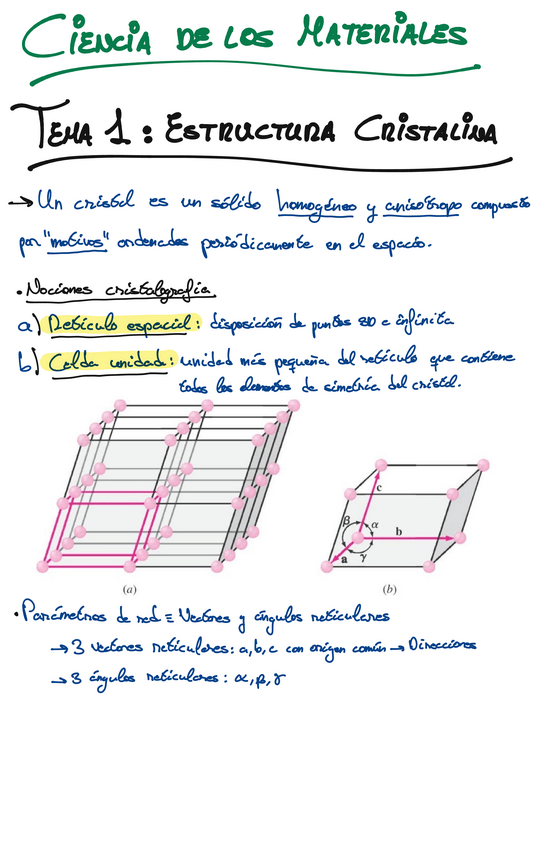 CIENCIA DE LOS MATERIALES
TEMA 1: ESTRUCTURA CRISTALINA
→ Un cristal es un sólido homogéneo y anisótropo compuesto
por "motivos" ordenados periódicamente en el espacio.
• Nociones cristalografía
a) Retículo espacial: disposición de puntos 3D e infinita
b) Celda unidad: unidad más pequeña del retículo que contiene
todos los elementos de simetría del cristal.
c
β α b
a γ
(a) (b)
• Parámetros de red ≡ Vectores y ángulos reticulares
→ 3 vectores reticulares: a, b, c con origen común → Direcciones
→ 3 ángulos reticulares: α, β, γ